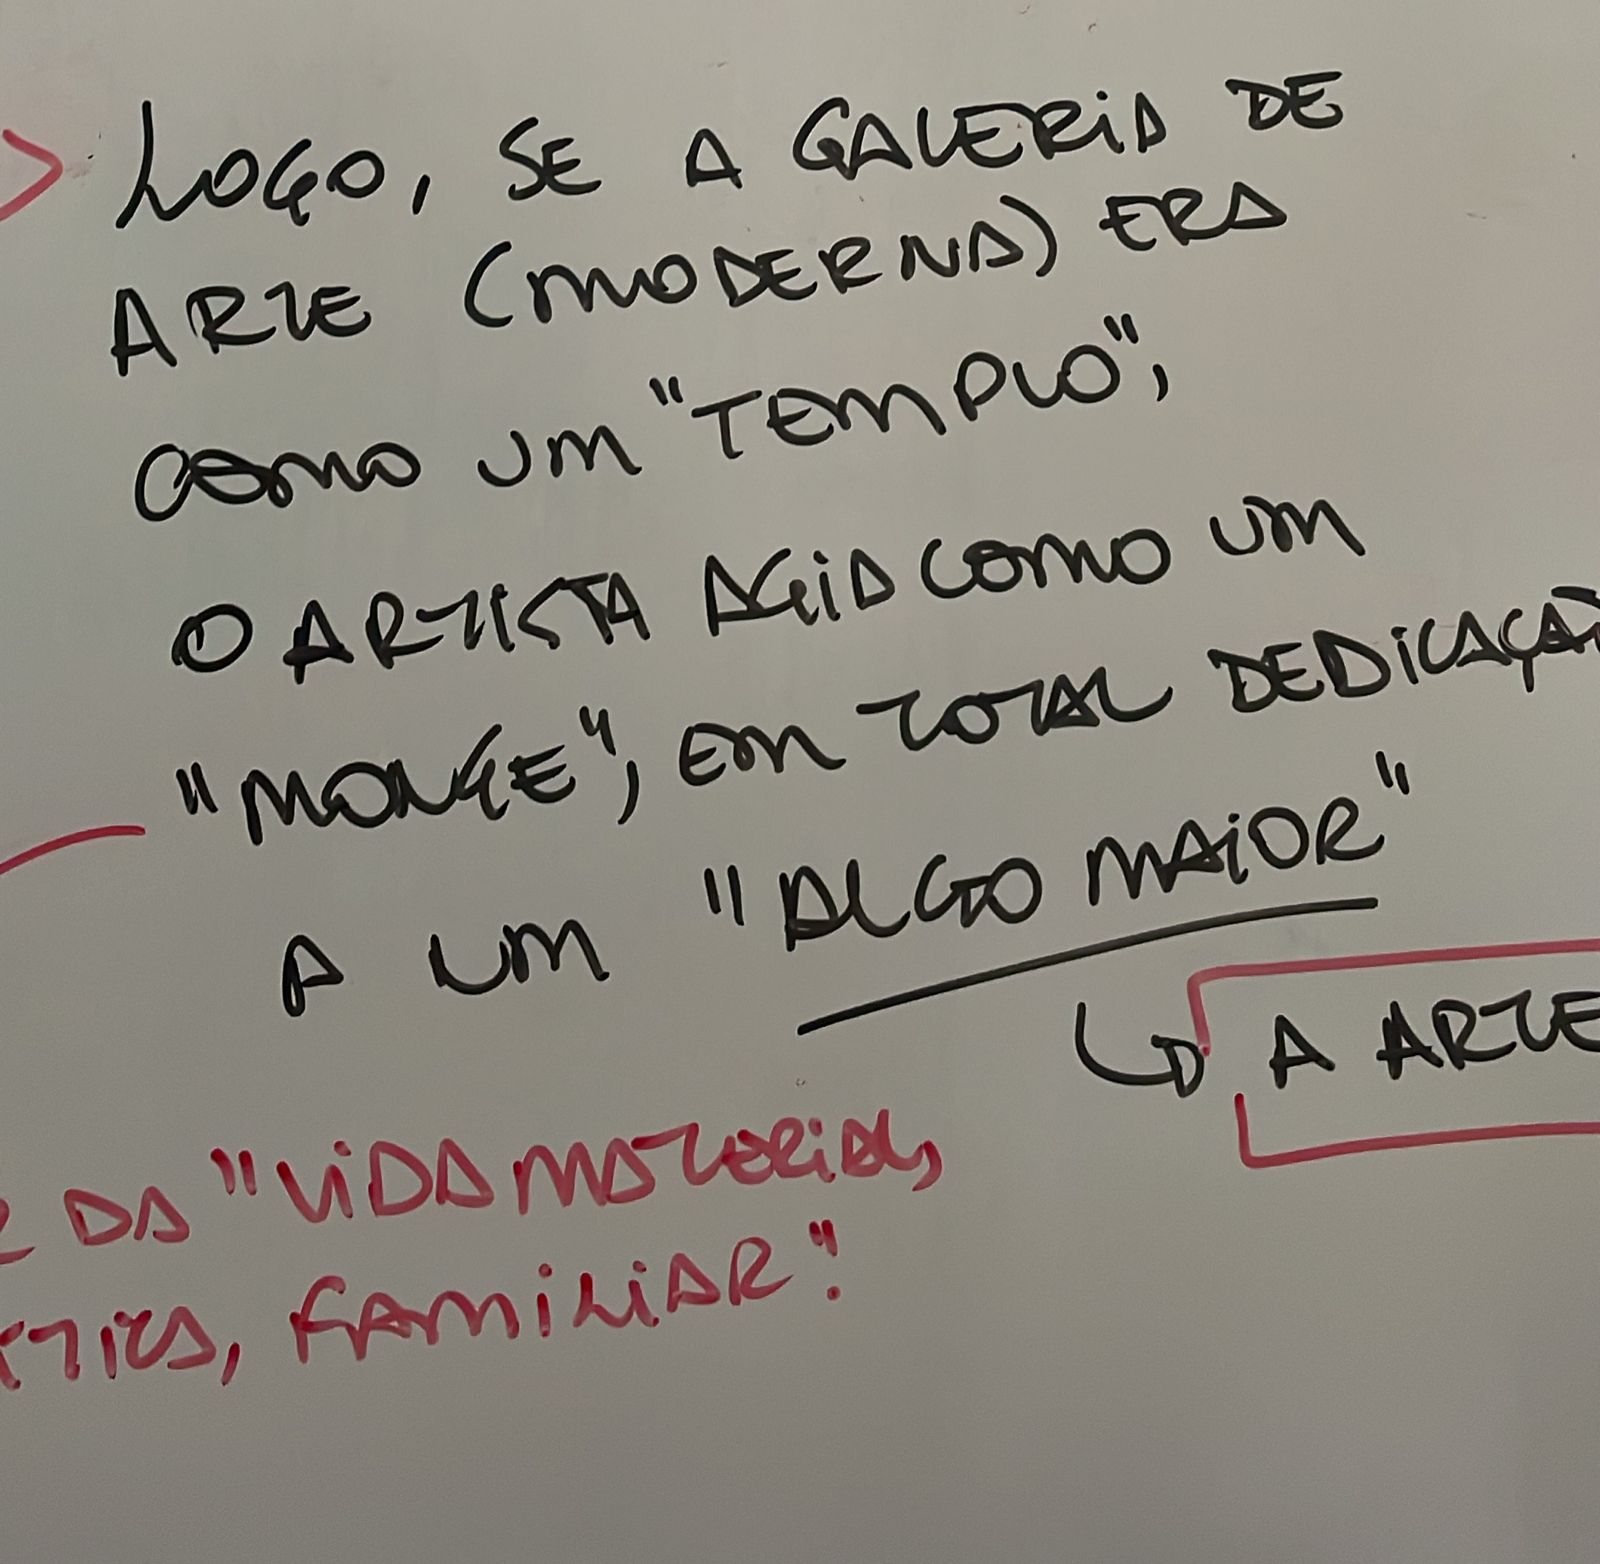 LOGO, SE A GALERIA DE
ARTE (MODERNA) ERA
COMO UM "TEMPLO",
O ARTISTA AGIA COMO UM
"MONGE", EM TOTAL DEDICAÇÃ
A UM "ALGO MAIOR"
A ARTE
DA "VIDA MATERIAL,
FAMILIAR".